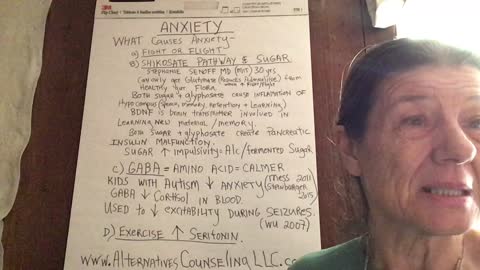 3M
ANXIETY
WHAT CAUSES ANXIETY-
A) FIGHT OR FLIGHT-
B) SHIKOSATE PATHWAY & SUGAR
STEPHANIE SENOFF MD (MIT) 30 yrs
CAN ONLY GET GLUTAMATE (REDUCES ADRENALINE) FROM
HEALTHY GUT FLORA
BOTH SUGAR + GLYPHOSATE COUSE INFLAMATION OF
HYPOCAMPUS (SPEECH, MEMORY, RETENTION & LEARNING)
BDNF IS BRAIN TRANSMITTER INVOLVED IN
LEARNING NEW MATERIAL/MEMORY.
BOTH SUGAR + GLYPHOSATE CREATE PANCREATIC
INSULIN MALFUNCTION.
SUGAR ↑ IMPULSIVITY = ALC/FERMENTED SUGAR
C) GABA = AMINO ACID = CALMER
KIDS WITH AUTISM ↓ ANXIETY (MESS 2011)
GABA ↓ CORTISOL IN BLOOD. 2015)
USED TO ↓ EXCITABILITY DURING SEIZURES.
(WU 2007)
D) EXERCISE ↑ SERITONIN.
WWW.ALTERNATIVESCOUNSELINGLLC.CO